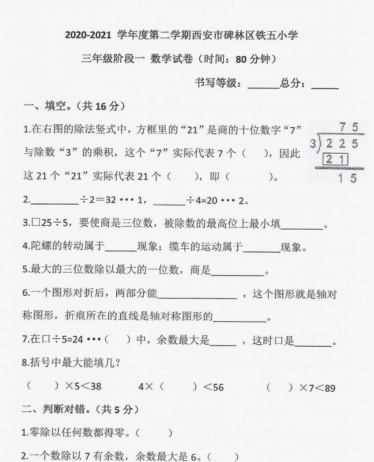 2020-2021 学年度第二学期西安市碑林区铁五小学
三年级阶段一 数学试卷（时间：80 分钟）
书写等级：_____总分：_____
一、填空。（共 16 分）
1.在右图的除法竖式中，方框里的“21”是商的十位数字“7”
与除数“3”的乘积，这个“7”实际代表 7 个（ ），因此
这 21 个“21”实际代表 21 个（ ），即（ ）。
7 5
3)2 2 5
2 1
1 5
2.______÷2＝32 ··· 1，______÷4=20 ··· 2。
3.□25÷5，要使商是三位数，被除数的最高位上最小填______。
4.陀螺的转动属于_____现象；缆车的运动属于_____现象。
5.最大的三位数除以最大的一位数，商是_______。
6.一个图形对折后，两部分能__________，这个图形就是轴对
称图形，折痕所在的直线是轴对称图形的_______。
7.在口÷5=24 ···（ ）中，余数最大是____，这时口是_____。
8.括号中最大能填几？
（ ）×5＜38 4×（ ）＜56 （ ）×7＜89
二、判断对错。（共 5 分）
1.零除以任何数都得零。（ ）
2.一个数除以 7 有余数，余数最大是 6。（ ）